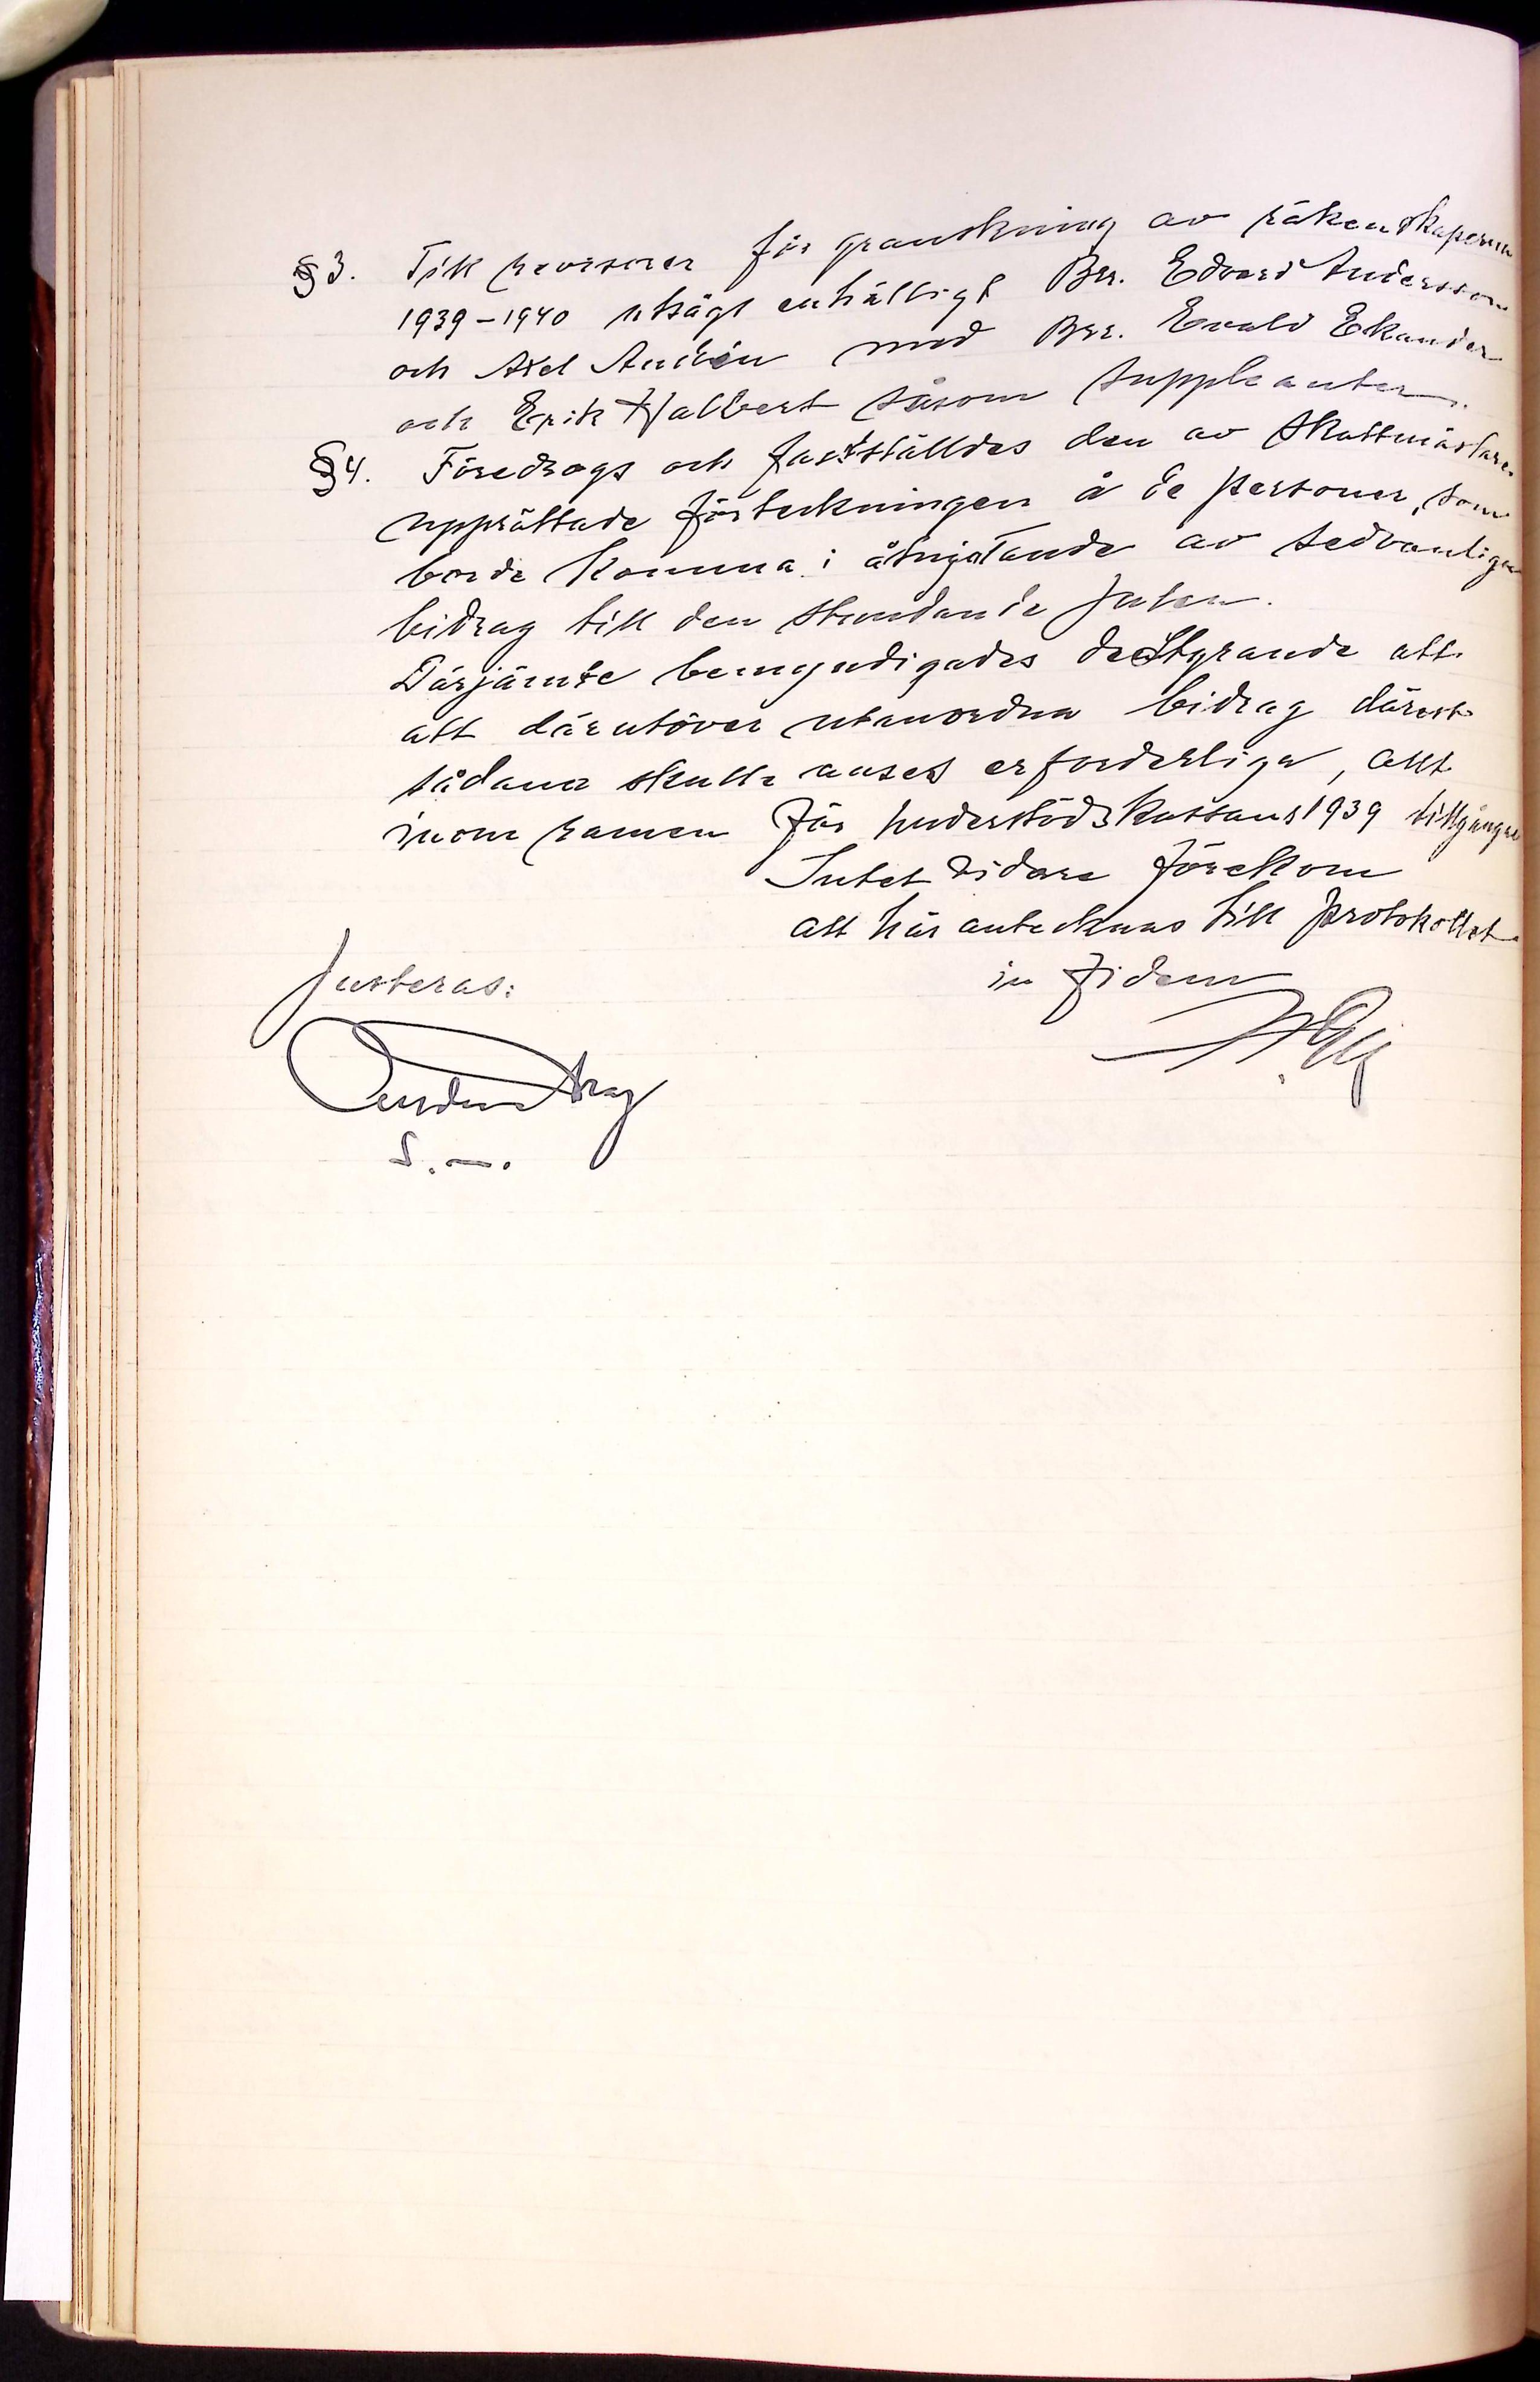 § 3. Till revisorer för granskning av räkenskaperna
1939-1940 utsågs enhälligt Brr. Edvard Andersson
och Axel Audén med Brr. Evald Ekander
och Erik Halbert såsom suppleanter.
§ 4. Föredrogs och fastställdes den av Skattmästaren
upprättade förteckningen å de personer, som
borde komma i åtnjutande av sedvanliga
bidrag till den stundande julen.
Därjämte bemyndigades de Styrande att
att därutöver utanordna bidrag därest
sådana skulle anses erforderliga, allt
inom ramen för understödskassans 1939 tillgångar
Intet vidare förekom
att här antecknas till protokollet
in fidem
Justeras: